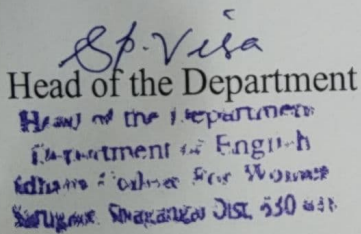 Sp. Visa
Head of the Department
Head of the Department
Department of English
College For Women
Dist. 630